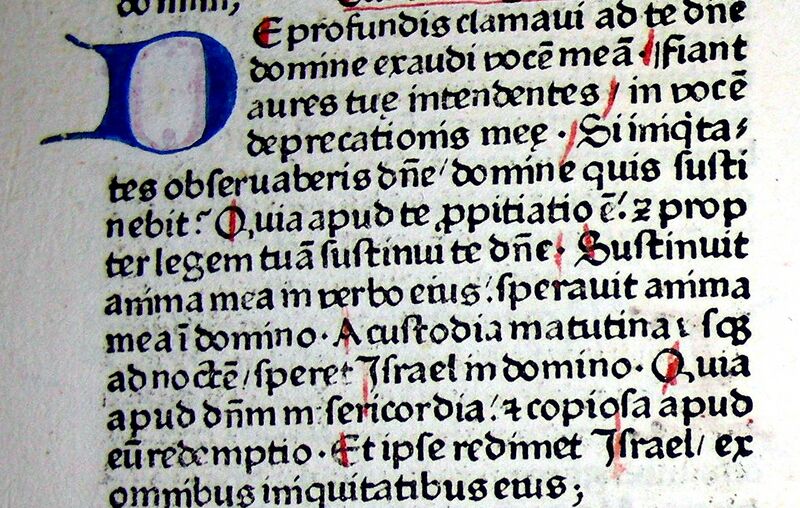 domini;
DE profundis clamaui ad te dn̄e
domine exaudi vocē meā · fiant
aures tuę intendentes / in vocē
deprecationis meę · Si iniq̇ta⸗
tes obseruaberis dn̄e / domine quis susti
nebit? Quia apud te ꝓpitiatio ē: ⁊ prop
ter legem tuā sustinui te dn̄e · Sustinuit
anima mea in verbo eius: sperauit anima
mea ī domino · A custodia matutina usqꝫ
ad noctē / speret Israel in domino · Quia
apud dn̄m misericordia: ⁊ copiosa apud
eū redemptio · Et ipse redimet Israel / ex
omnibus iniquitatibus eius;